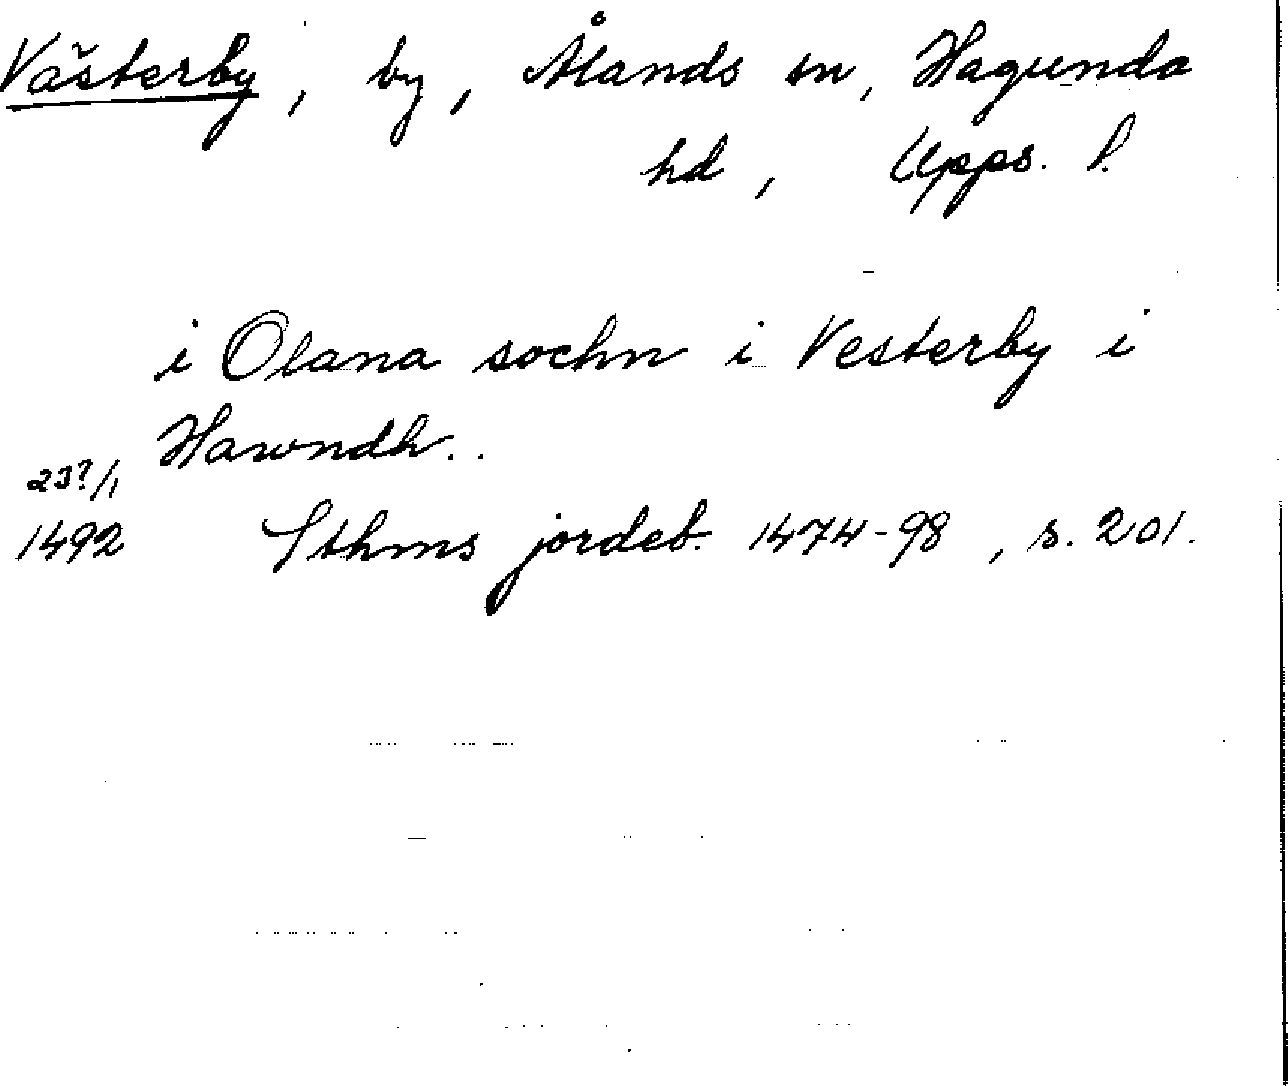 Västerby, by, Ålands sn, Hagunda
hd, Upps. l.
i Olana sochn i Vesterby i
Hawndh..
23?/1
1492 Sthms jordeb. 1474-98, s. 201.